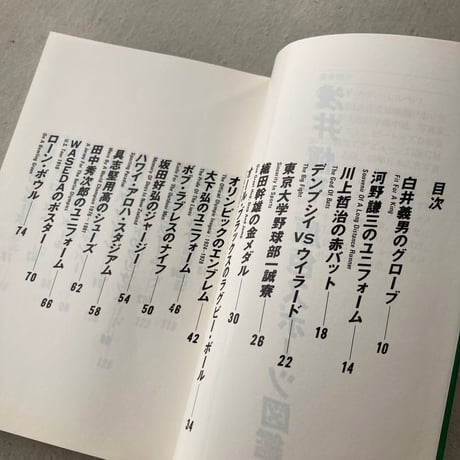 目次
白井義男のグローブ——10
Fit For A King
河野謙三のユニフォーム——14
Of A Long Distance Runner
川上哲治の赤バット——18
The God Of Bats
デンプシイ VS ウイラード——22
The Big Fight
東京大学野球部一誠寮——26
Sincerity In Sports
織田幹雄の金メダル——30
オール・ブラックスのラグビー・ボール——34
オリンピックのエンブレム——42
The Official Olympic Images 1924-1928
大下弘のユニフォーム——46
ボブ・ラブレスのナイフ——50
坂田好弘のジャージー——54
ハワイ・アロハ・スタジアム——58
具志堅用高のシューズ——62
田中秀次郎のユニフォーム——66
WASEDAのポスター——70
ローン・ボウル——74